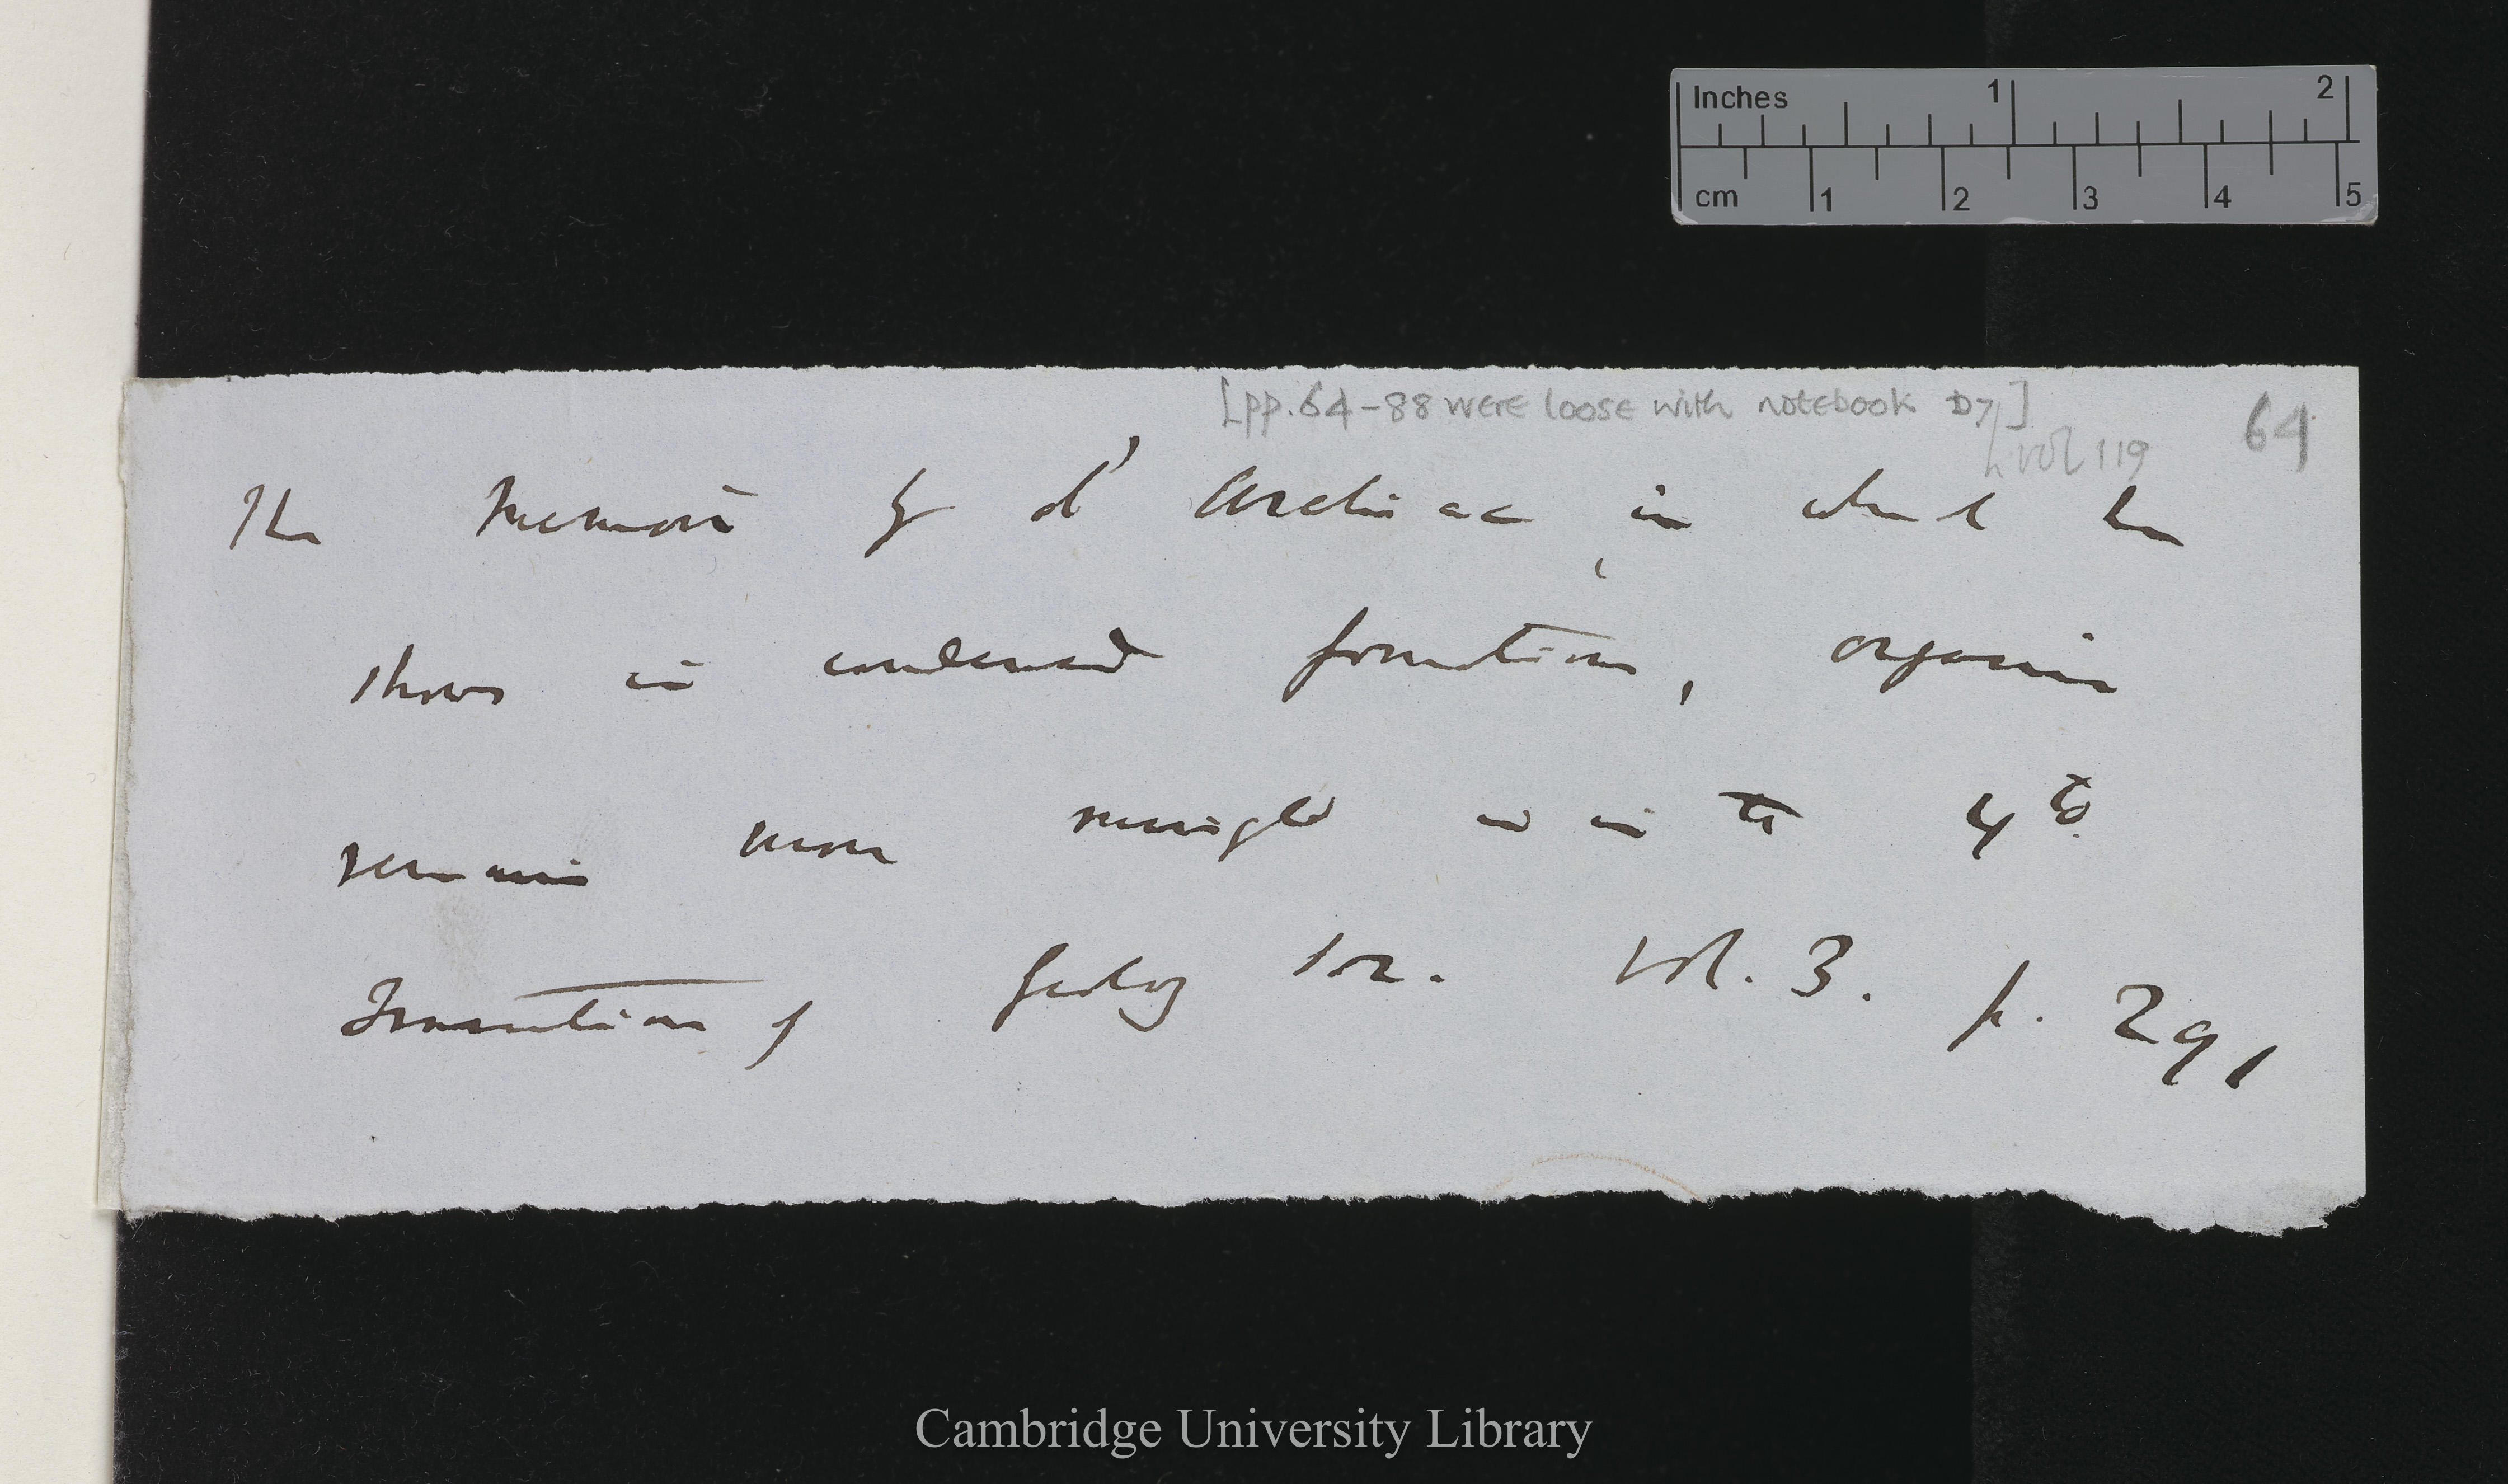 Inches 1 2
cm 1 2 3 4 5
[pp. 64-88 were loose with notebook D7]
vol 119
64
The Memoir by d'Archiac in which he
shows in condensed formations, organic
remains more mingled is in the 4to
Transactions of Geolog Soc. Vol. 3. p. 291
Cambridge University Library